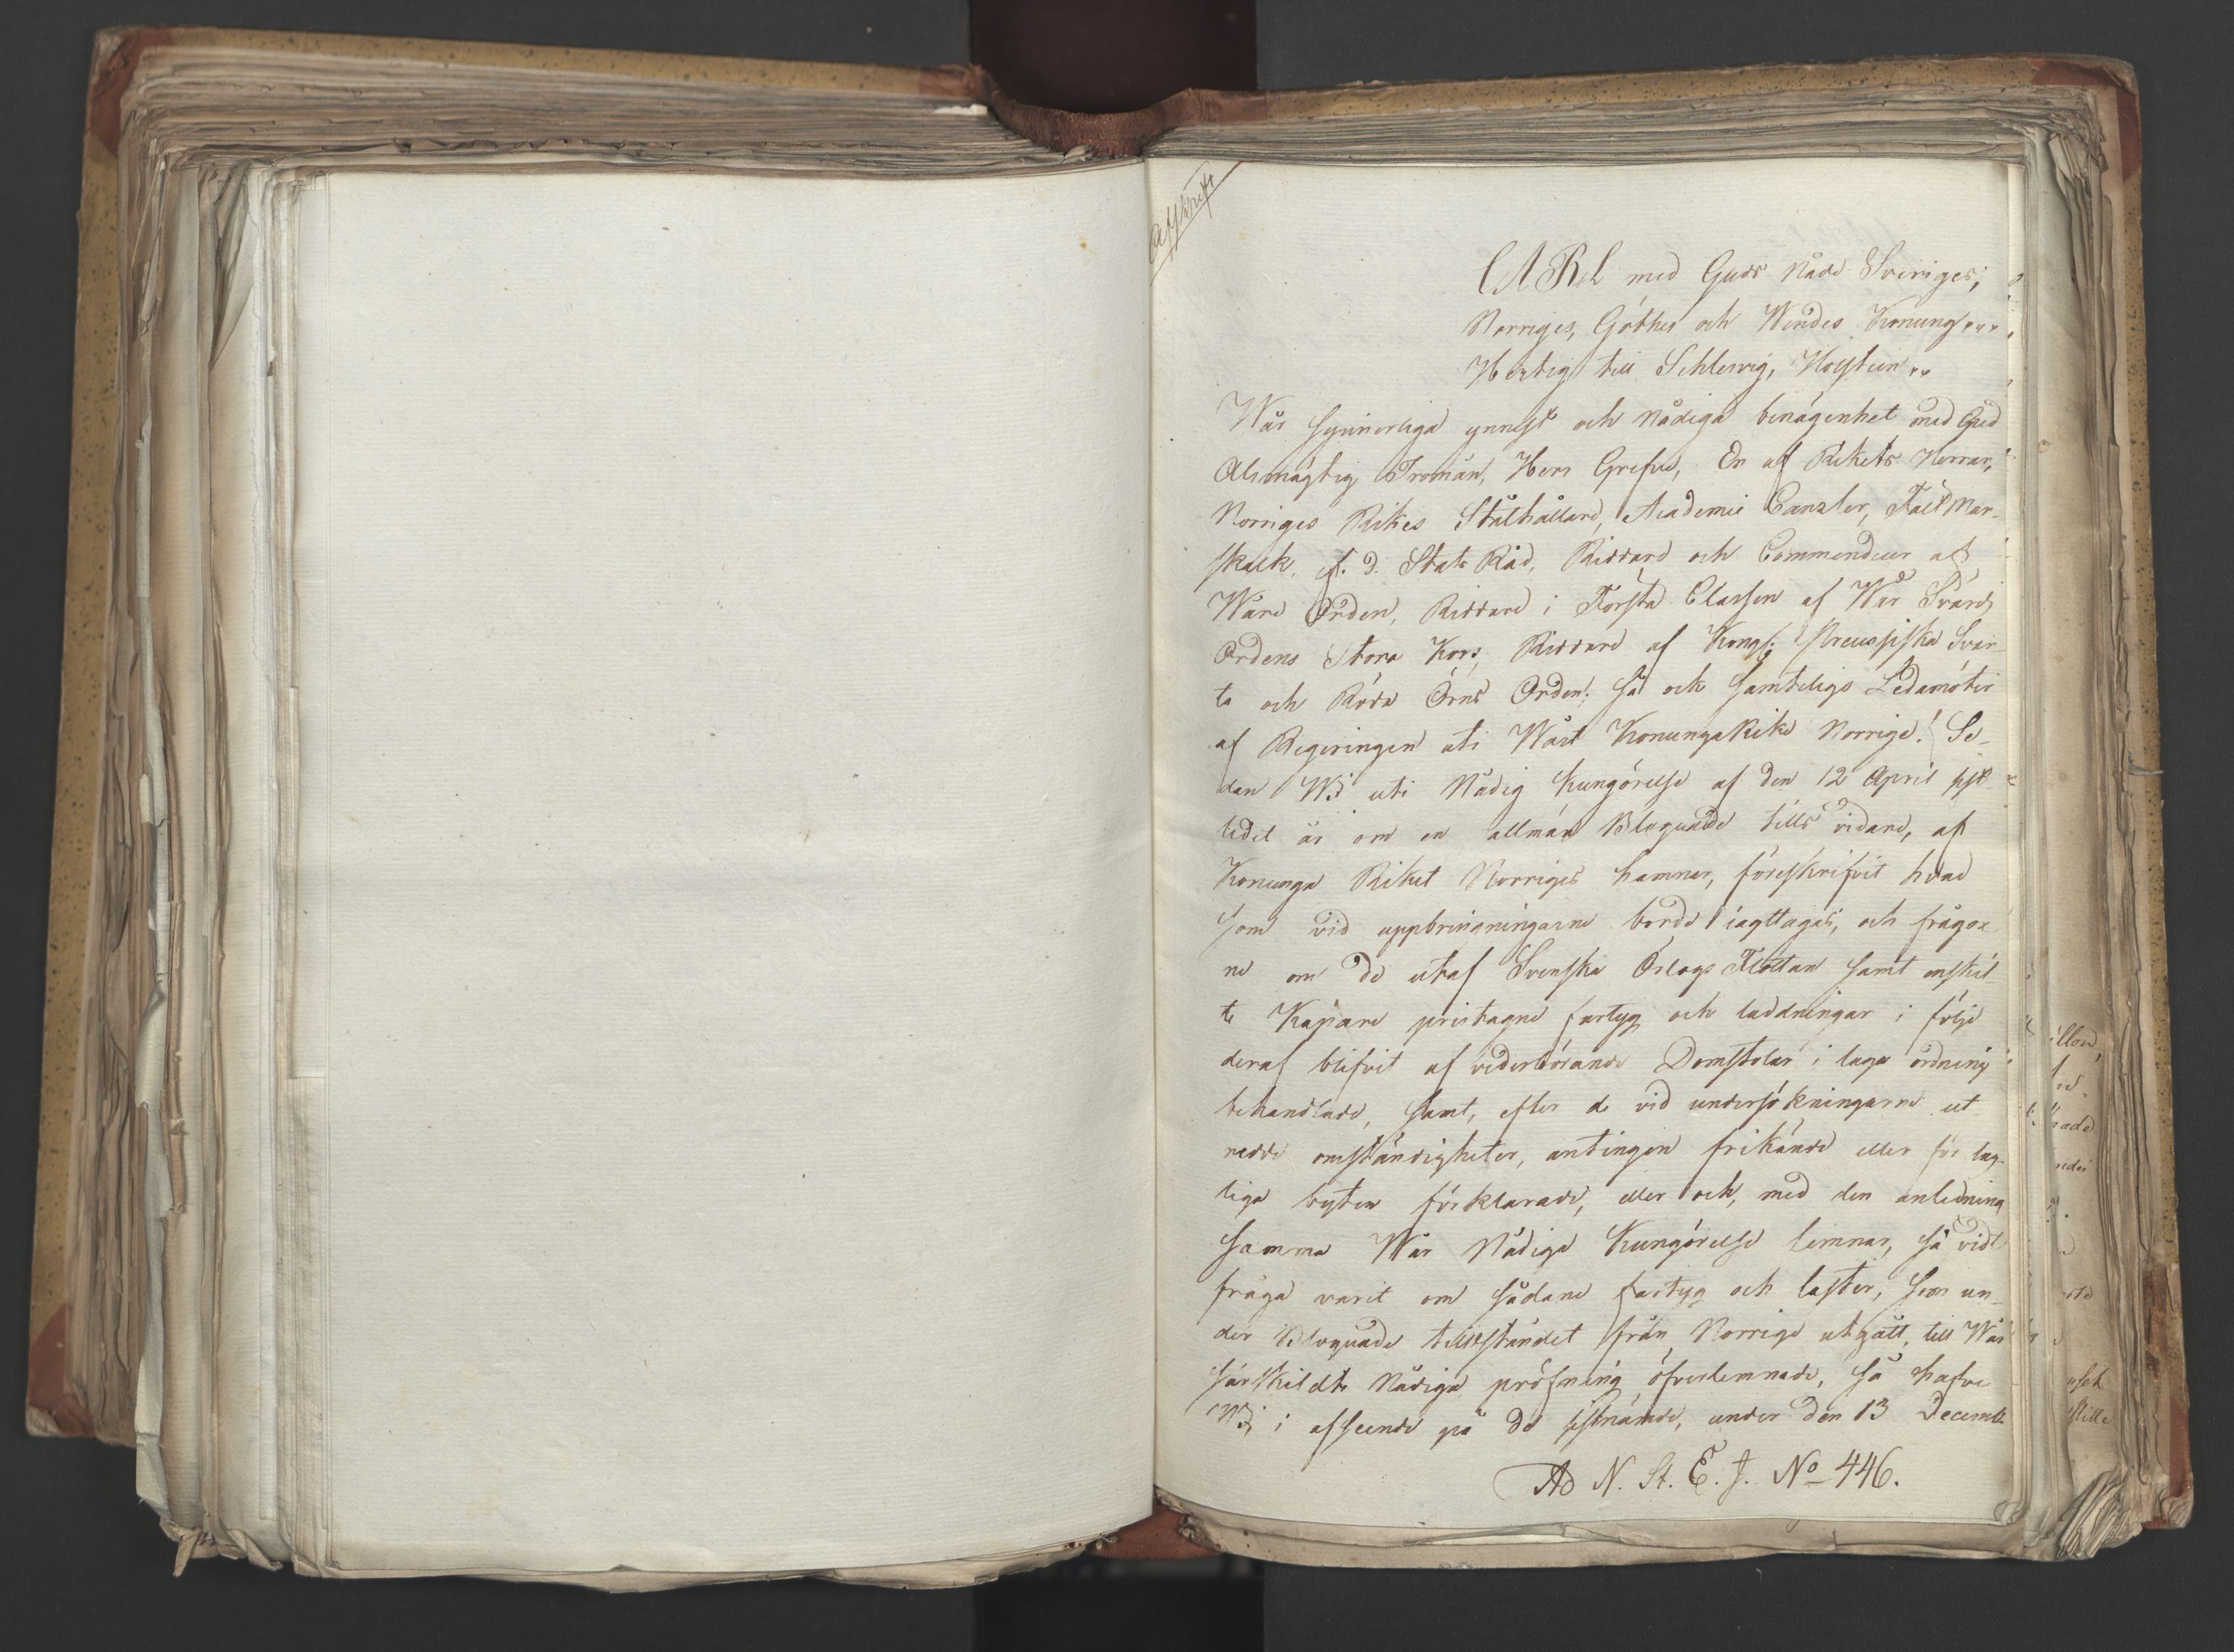 Afskrift
CARL med Guds Nåde Sveriges,
Norriges, Göthes och Wendes Konung
Hertig till Schlesvig, Hollstein
Wår synnerliga ynnest och Nådiga benägenhet med Gud
Alsmägtig Troman, Herr Grefve, En af Rikets Herrar,
Norriges Rikes Ståthållare, Academie Canzler, Fält Mar-
skalk, f. d. Stats Råd, Riddare och Commendeur af
Wåre Orden, Riddare i Första Classen af Wår Svärds
Ordens Stora Kors, Riddare af Kongl. Preussiska Svar-
ta och Röda Örns Orden; så ock samtelige Ledamöter
af Regeringen uti Wårt Konunga Rike Norrige! Se-
dan Wi uti Nådig Kungörelse af den 12 April sist-
ledit år om en allmän Bloquade tills vidare, af
Konunga Riket Norriges hamnar, föreskrifvit hvad
som vid uppbringningarne borde iagttagas, och frågor-
ne om de utaf Svenska Örlogs Flottan samt enskil-
te Kapare pristagne fartyg och laddningar i följe
deraf blifvit af vederbörande Domstolar i laga ordning
behandlade, samt, efter de vid undersökningarne ut-
redde omständigheter, antingen frikände eller för lag-
liga byten förklarade, eller och, med den anledning
samma Wår Nådiga Kungörelse lemnar, så vidt
fråga varit om sådane fartyg och laster, som un-
der Bloquade tillståndet från Norrige utgått, till Wår
särskildta Nådiga pröfning öfverlemnade, så hafve
Wi i afseende på de sistnämde, under den 13 Decemb.
Ad N. St. E. J. No 446.